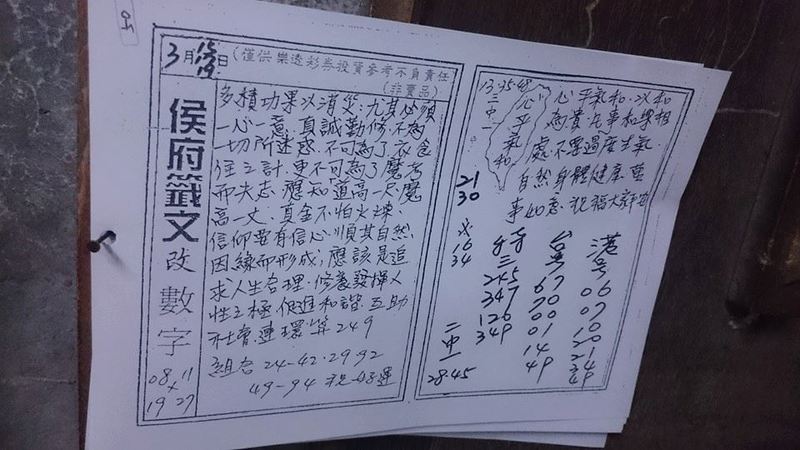 3月15 19日(僅供樂透彩券投資參考不負責任
(非賣品)
侯府籤文
改數字
08 11
×
19 27
多積功果以消災,尤其必須
一心一意,真誠勤修,不為
一切所迷惑,不可為了衣食
住之計,更不可為了魔考
而失志,應知道高一尺魔
高一丈,真金不怕火煉,
信仰要有信心,順其自然
因緣而形成,應該是追
求人生合理,修養發揮人
性之極,促進和諧,互助
社會,連環算249
組合24-42.29.92
49-94 祝好運
13-35-48
三中一
心平氣和
心平氣和,以和
為貴,凡事和學相
處,不要過度生氣,
自然身體健康,萬
事如意,祝福大家
21
30
16
34
二中一
28.45
三
245
347
126
349
台号
67
70
00
01
14
49
港号
06
07
10
21
34
49